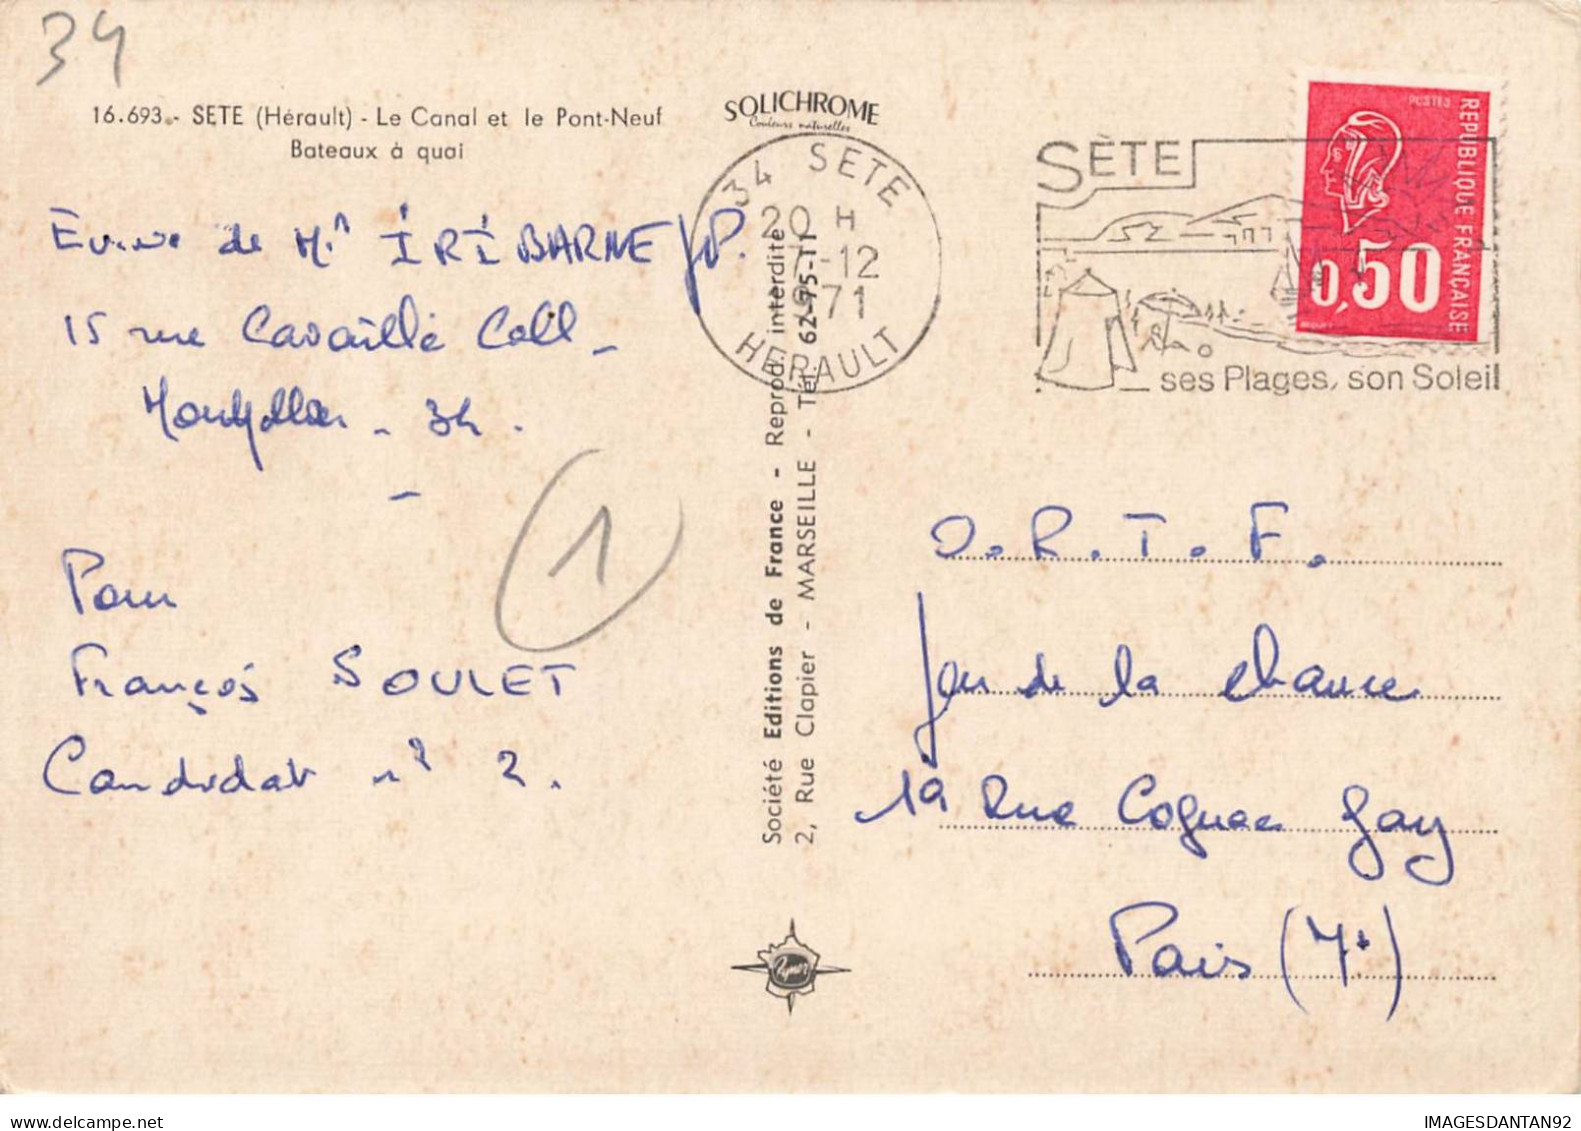 34
16.693.- SETE (Hérault) - Le Canal et le Pont-Neuf
Bateaux à quai
SOLICHROME
Couleurs naturelles
Envoi de Mr IRIBARNE JP.
15 rue Cavaillé Coll -
Montpellier - 34.
1
Pour
François SOULET
Candidat n° 2.
Société Editions de France - Reprod. interdite
2, Rue Clapier - MARSEILLE - Tél. 62-75-11
34 SETE
20 H
7-12
1971
HERAULT
SÈTE
ses Plages, son Soleil
POSTES
REPUBLIQUE FRANÇAISE
0,50
O.R.T.F.
Jeu de la chance
19 Rue Cognac Jay
Paris (7e)
IMAGESDANTAN92